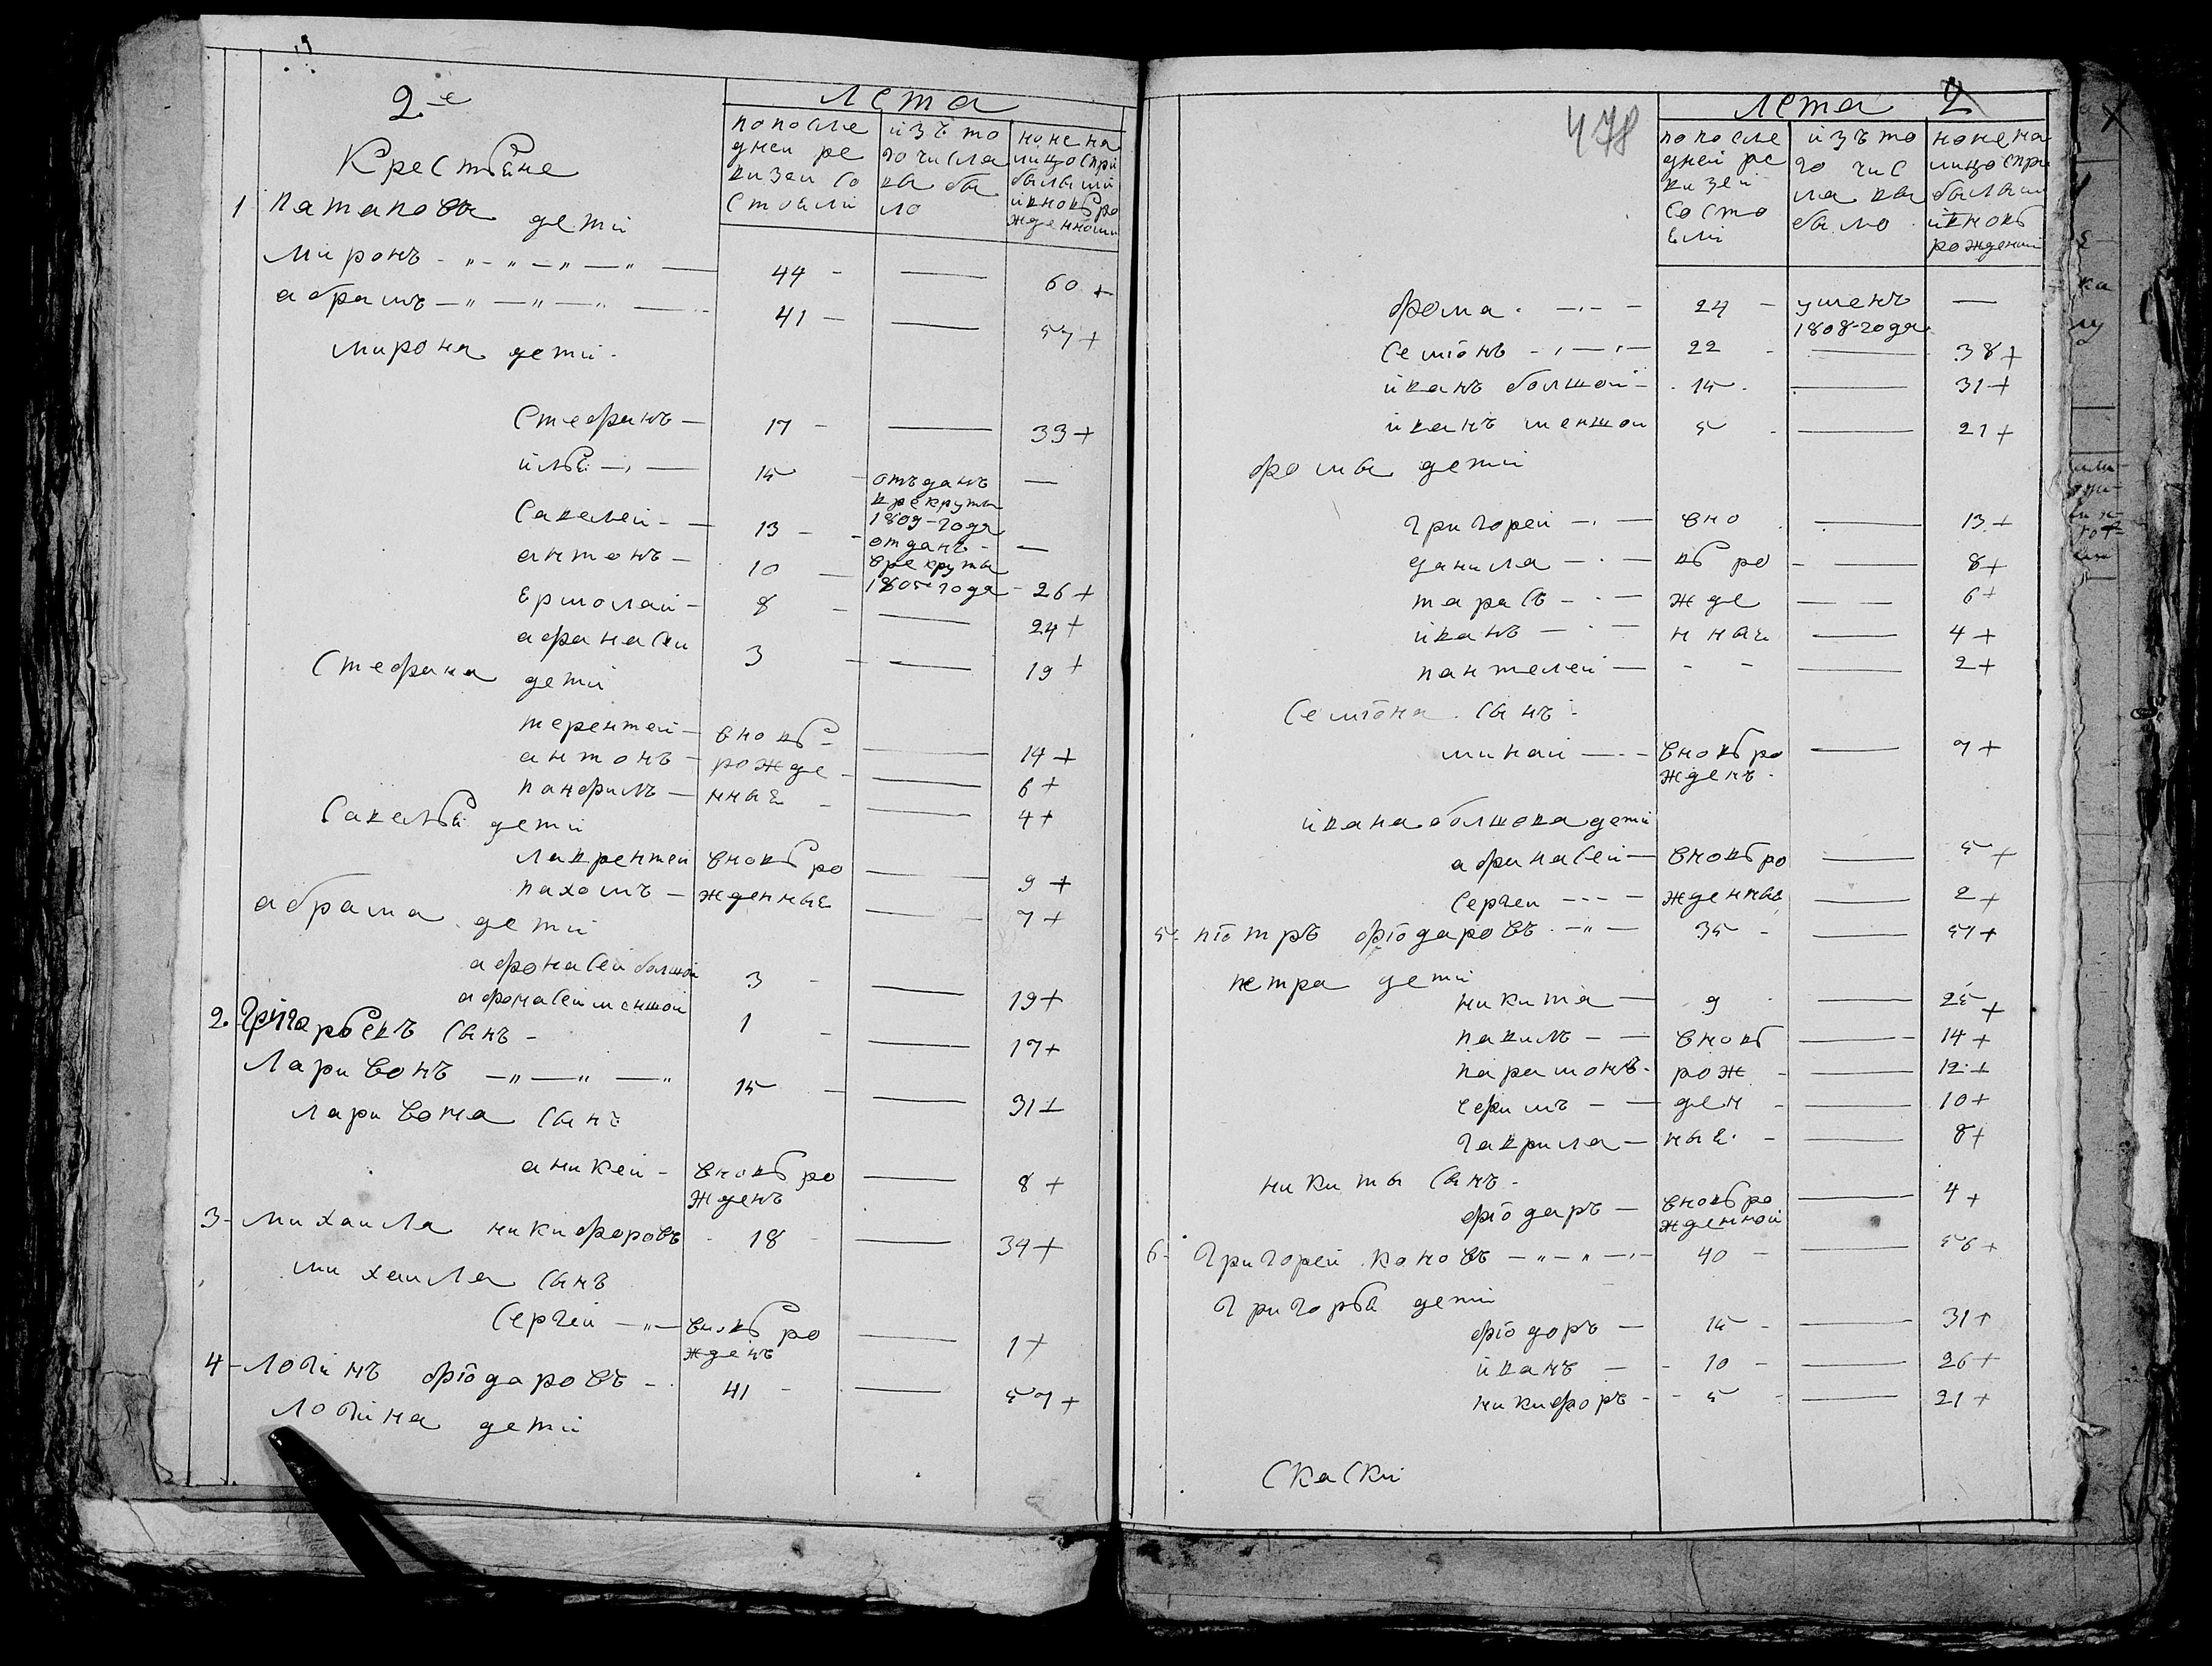 2е
Крестьяне
лета
попосле
дней ре
визеи со
стояли
изъ то
го числа
вы бы
ло
ноне на
лицо спри
былыми
ивновь ро
жденными
1 патаповы дети
миронъ 44 60 +
абрамъ 41 57 +
мирона дети
стефанъ 17 33 +
илья 15 отъданъ
врекруты
1809-года
савелеи 13 отданъ
врекруты
1805 года
антонъ 10 26 +
ермолаи 8 24 +
афанасеи 3 19 +
стефана дети
терентеи вновь 14 +
антонъ рожде 6 +
панфилъ нные 4 +
савелья дети
лаврентеи вновь ро 9 +
пахомъ жденные 7 +
абрама дети
афонасеи болшои 3 19 +
афонасеи меншои 1 17 +
2. Григорьевъ сынъ
Ларивонъ 15 31 +
ларивона сынъ
аникеи вновь ро 8 +
жденъ
3 михаила никифоровъ 18 34 +
михаила сынъ
сергеи вновь ро 1 +
жденъ
4 логинъ фіодаровъ 41 57 +
логина дети
478
лета 2
попосле
дней ре
визеи
состо
ели
изъ то
го чис
ла вы
было
ноне на
лицо спри
былыми
ивновь
рожденми
фома 24 уменъ
1808-года
семіонъ 22 38 +
иванъ болшои 15 31 +
иванъ меншои 5 21 +
фомы дети
григореи вно 13 +
данила вь ро 8 +
тарасъ жде 6 +
иванъ нные 4 +
пантелеи 2 +
семіона сынъ
минаи вновь ро 7 +
жденъ
ивана болшова дети
афанасеи вновь ро 5 +
сергеи жденные 2 +
5 піотръ фіодаровъ 35 51 +
петра дети
никита 9 25 +
павилъ вновь 14 +
парамонъ рож 12 +
ефимъ ден 10 +
гаврила ные 8 +
никиты сынъ
фіодаръ вновь ро 4 +
жденной
6 григореи коновъ 40 56 +
григорья дети
фіодоръ 15 31 +
иванъ 10 26 +
никифоръ 5 21 +
скаски